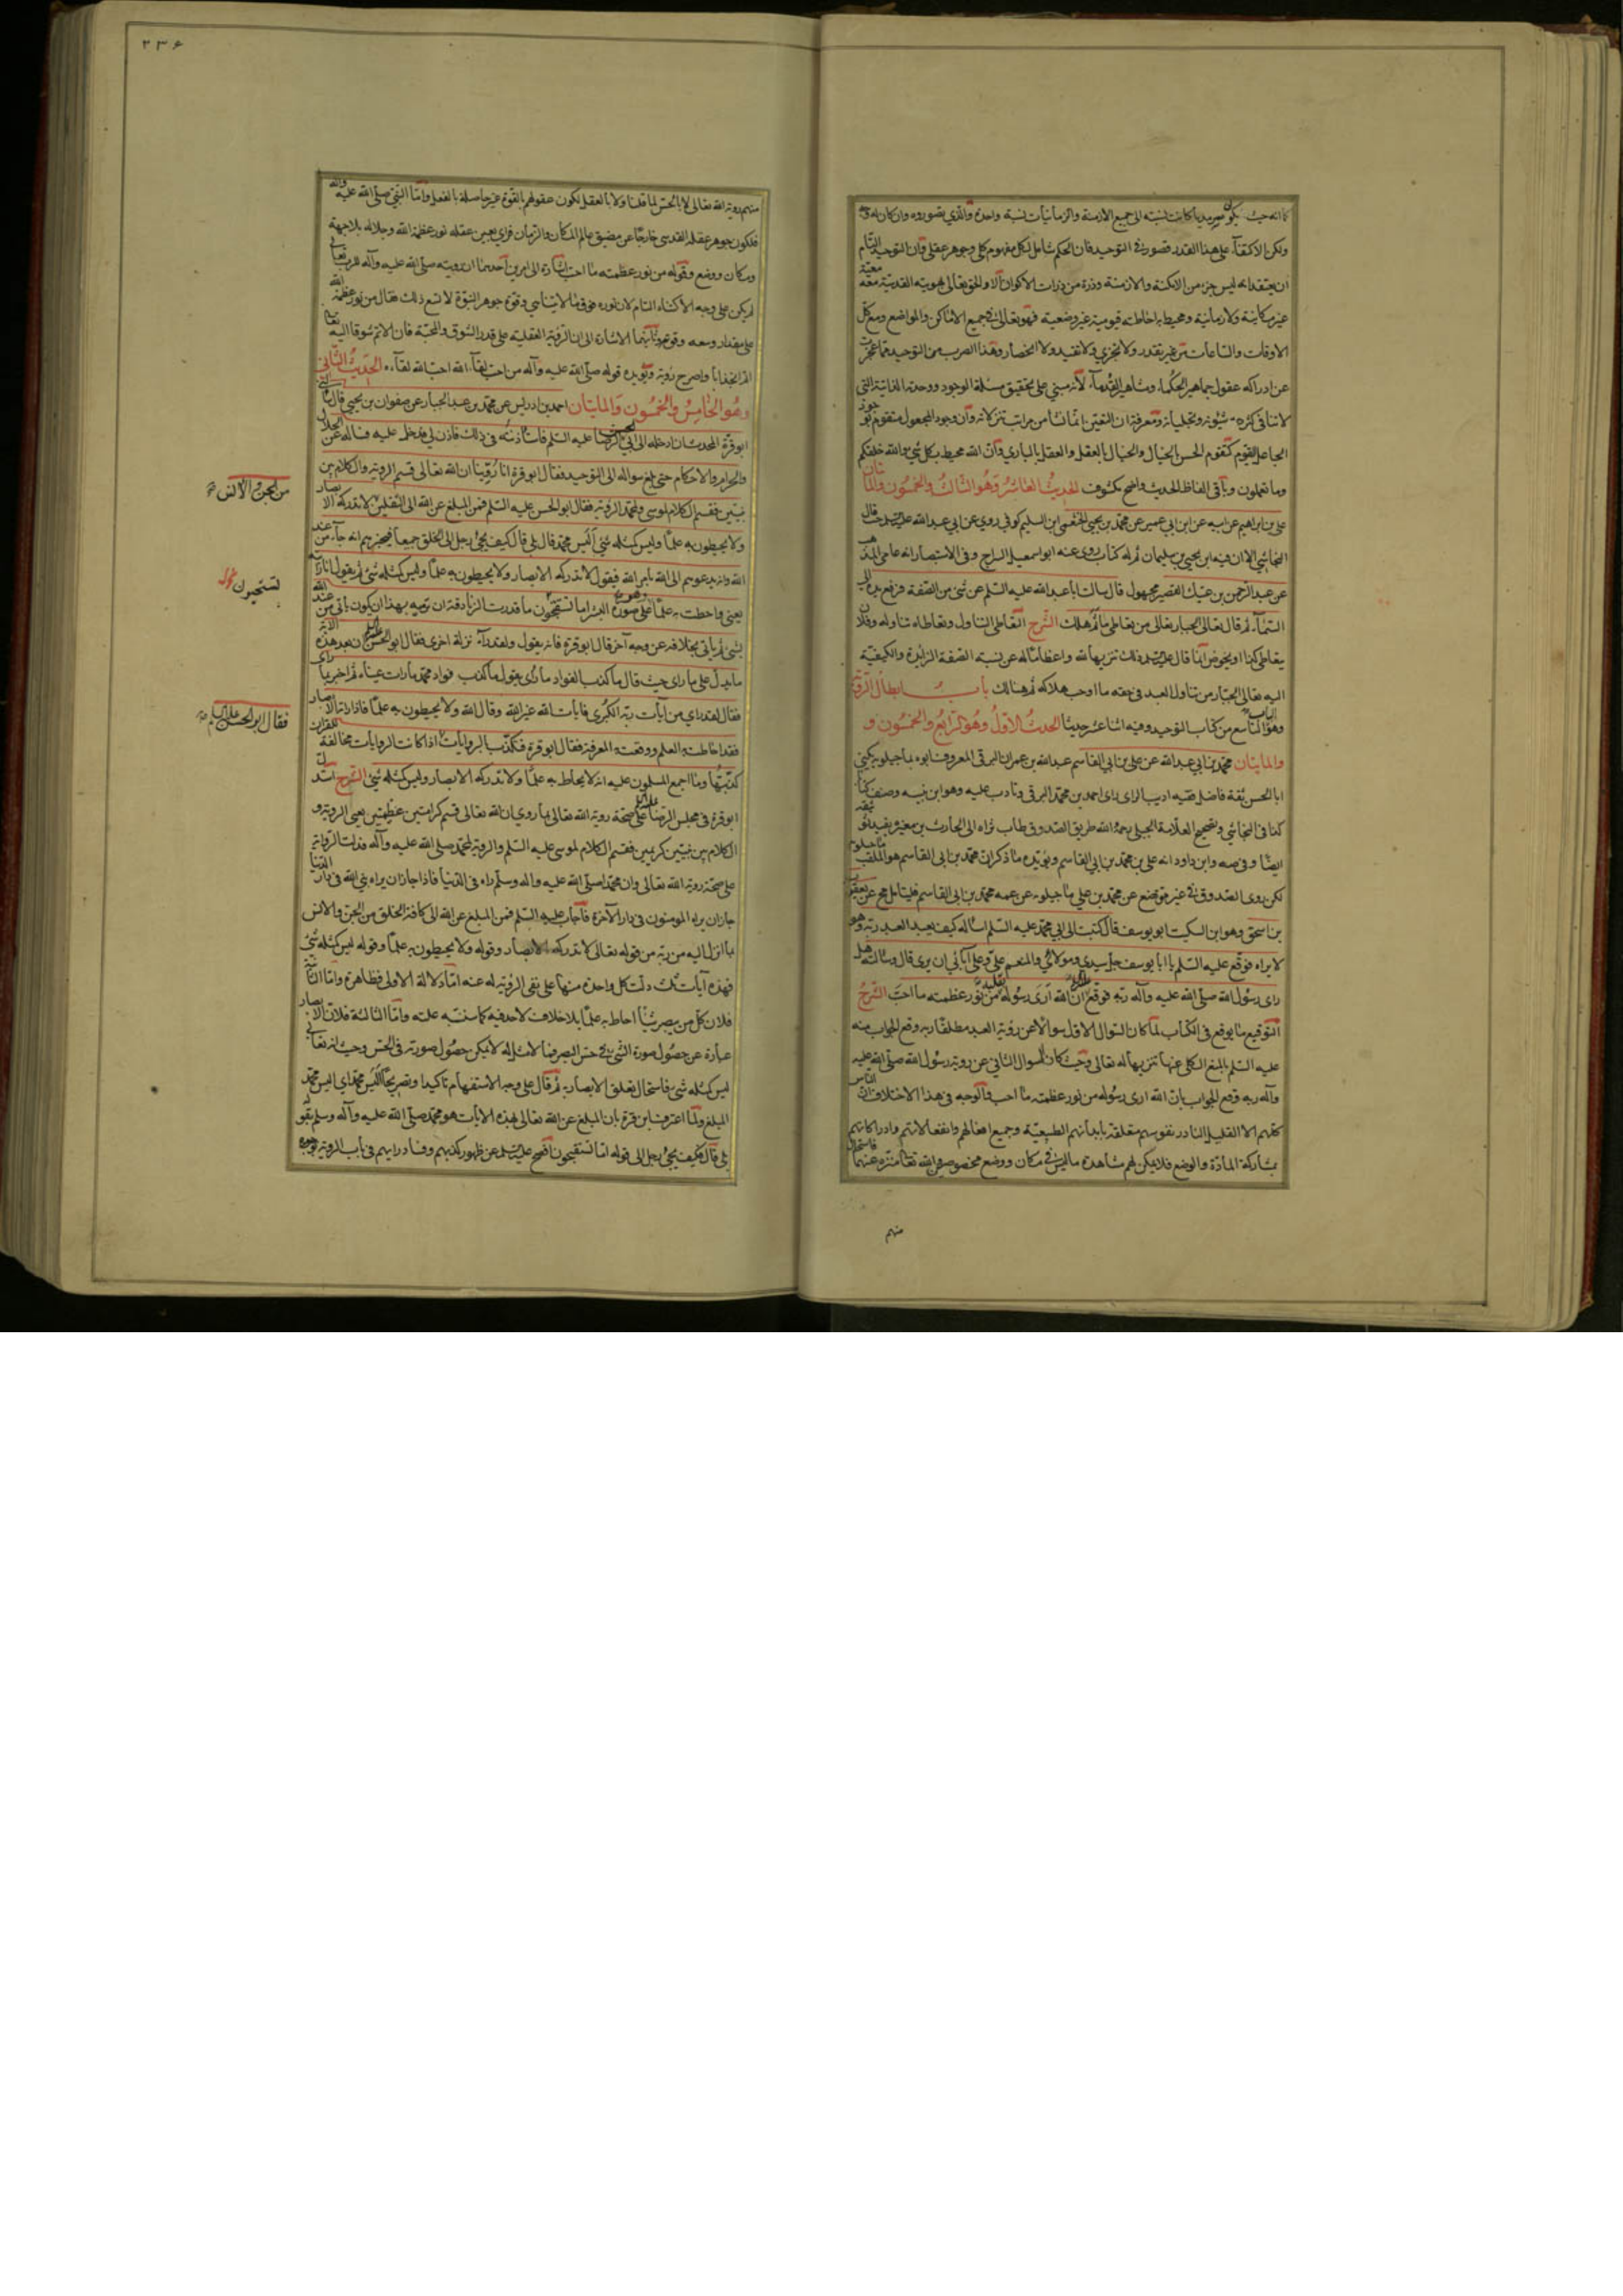 ولكن الاكتفاء على هذا القدر قصور في التوحيد فان الحكم شامل لكل مفهوم كلي وجوهر عقلي وان التوحيد التام
ان يعتقد انه ليس جزء من الامكنة والازمنة وذرة من ذرات الاكوان الا والحق تعالى بهويته القدسية معه معية
غير مكانية ولا زمانية ومحيط به احاطة قيومية غير وضعية فهو تعالى في جميع الاماكن والمواضع ومع كل
الاوقات والساعات من غير تقدر ولا تجزي ولا تقيد ولا انحصار وهذا الضرب من التوحيد مما عجزت
عن ادراكه عقول جماهير الحكماء ومشاهير القدماء لانه مبني على تحقيق مسئلة الوجود ووحدته الذاتية التي
الجاعل القيوم كتقوم الحس بالخيال والخيال بالعقل والعقل بالباري وان الله محيط بكل شيء والله خلقكم
وما تعملون وباقي الفاظ الحديث واضح مكشوف الحديث العاشر وهو الثالث والخمسون والمائتان
علي بن ابراهيم عن ابيه عن ابن ابي عمير عن محمد بن يحيى الخثعمي ابن السليم كوفي روى عن ابي عبد الله عليه السلم قال
النجاشي الا ان فيه ابن يحيى بن سليمان ثم له كتاب روى عنه ابو اسمعيل السراج وفي الاستبصار انه عامي المذهب
عن عبد الرحمن بن عتيك القصير مجهول قال سالت ابا عبد الله عليه السلم عن شئ من الصفة فرفع يده الى
السماء ثم قال تعالى الجبار تعالى من تعاطى ما ثم هلك الشرح التعاطي التناول وتعاطاه تناوله وفلان
يتعاطى كذا اي يخوض
اليه تعالى الجبار من تناول العبد في حقه ما اوجب هلاكه ثم هنالك باب ابطال الرؤية
وهو الباب التاسع من كتاب التوحيد وفيه اثنا عشر حديثا الحديث الاول وهو الرابع والخمسون و
والمايتان محمد بن ابي عبد الله عن علي بن ابي القاسم عبد الله بن عمران البرقي المعروف ابوه بماجيلويه يكنى
ابا الحسن ثقة فاضل فقيه اديب راى احمد بن محمد البرقي وتادب عليه وهو ابن بنته وصنف كتبا
بن اسحق وهو ابن السكيت ابو يوسف قال كتبت الى ابي محمد عليه السلم اساله كيف يعبد العبد ربه وهو
لا يراه فوقع عليه السلم يا ابا يوسف جل سيدي ومولاي والمنعم علي وعلى آبائي ان يرى قال وسالته هل
راى رسول الله صلى الله عليه وآله ربه فوقع ان الله ارى رسوله بقلبه من نور عظمته ما احب الشرح
التوقيع ما يوقع في الكتاب لما كان السوال الاول سوالا عن رؤية العبد مطلقا ربه وقع الجواب منه
عليه السلم بالمنع الكلي عنها تنزيها له تعالى وحيث كان السوال الثاني عن روية رسول الله صلى الله عليه
وآله ربه وقع الجواب بان الله ارى رسوله من نور عظمته ما احب والوجه في هذا الاختلاف ان الناس
كلهم الا القليل النادر نفوسهم متعلقة بابدانهم الطبيعية وجميع افعالهم وانفعالاتهم وادراكاتهم
بمشاركة المادة والوضع فلا يمكن لهم مشاهدة ما ليس في مكان ووضع مخصوص
منهم
٢٣۶
منهم روية الله تعالى لا بالحس لما قلنا ولا بالعقل لكون عقولهم بالقوة غير حاصلة بالفعل واما النبي صلى الله عليه وآله
فلكون جوهر عقله القدسي خارجا عن مضيق عالم المكان والزمان فراى بعين عقله نور عظمة الله وجلاله بلا جهة
ومكان ووضع وقوله من نور عظمته ما احب اشارة الى امرين احدهما ان رويته صلى الله عليه وآله للرب تعالى
لم يكن على وجه الاكتناه التام لان نوره فوق ما لا يتناهى وقوة جوهر النبوة لا تسع ذلك فقال من نور عظمة الله
على مقدار وسعه وقوته وثانيهما الاشارة الى ان الرؤية العقلية على قدر الشوق والمحبة فان الاتم شوقا اليه تعالى
اتم انجذابا واصرح رؤية ويؤيده قوله صلى الله عليه وآله من احب لقاء الله احب الله لقاءه الحديث الثاني
وهو الخامس والخمسون والمايتان احمد بن ادريس عن محمد بن عبد الجبار عن صفوان بن يحيى قال سالني
ابو قرة المحدث ان ادخله الى ابي الحسن الرضا عليه السلم فاستاذنته في ذلك فاذن لي فدخل عليه فساله عن الحلال
والحرام والاحكام حتى بلغ سواله الى التوحيد فقال ابو قرة انا روينا ان الله تعالى قسم الروية والكلام بين
نبيين فقسم الكلام لموسى ولمحمد الرؤية فقال ابو الحسن عليه السلم فمن المبلغ عن الله الى الثقلين لا تدركه الابصار
من الجن والانس
ولا يحيطون به علما وليس كمثله شئ اليس محمد قال بلى قال كيف يجئ رجل الى الخلق جميعا فيخبرهم انه جاء من عند
الله وانه يدعوهم الى الله بامر الله فيقول لا تدركه الابصار ولا يحيطون به علما وليس كمثله شئ ثم يقول انا رايته
بعيني واحطت به علما وهو على صورة البشر اما تستحيون ما قدرت الزنادقة ان ترميه بهذا ان يكون ياتي من عند الله
تستحيون
بشئ ثم ياتي بخلافه من وجه آخر قال ابو قرة فانه يقول ولقد رآه نزلة اخرى فقال ابو الحسن عليه السلم ان بعد هذه الاية
ما يدل على ما راى حيث قال ما كذب الفؤاد ما راى يقول ما كذب فواد محمد ما رات عيناه ثم اخبر بما راى
فقال لقد راى من آيات ربه الكبرى فايات الله غير الله وقال الله ولا يحيطون به علما فاذا راته الابصار
فقد احاطت به العلم ووقعت المعرفة فقال ابو قرة فتكذب بالروايات اذا كانت الروايات مخالفة للقران
فقال ابو الحسن عليه السلم
كذبتها وما اجمع المسلمون عليه انه لا يحاط به علما ولا تدركه الابصار وليس كمثله شئ الشرح استدل
ابو قرة في مجلس الرضا عليه السلم على صحة روية الله تعالى بما روي ان الله تعالى قسم كرامتين عظيمتين يعني الروية و
الكلام بين نبيين كريمين فقسم الكلام لموسى عليه السلم والروية لمحمد صلى الله عليه وآله فدلت الرواية
على صحة روية الله تعالى وان محمدا صلى الله عليه واله وسلم راه في الدنيا فاذا جاز ان يراه نبي الله في دار الدنيا
جاز ان يراه المومنون في دار الآخرة فاجاب عليه السلم فمن المبلغ عن الله الى كافة الخلق من الجن والانس
ما انزل اليه من ربه من قوله تعالى لا تدركه الابصار وقوله ولا يحيطون به علما وقوله ليس كمثله شئ
فهذه آيات ثلث دلت كل واحدة منها على نفي الرؤية له عنه اما دلالة الاولى فظاهرة واما الثانية
فلان كل من يبصر شيئا احاط به علما بلا خلاف لاحد فيه واما الثالثة فلان الابصار
عبارة عن حصول صورة الشئ في حس البصر فما لا مثل له لا يمكن حصول صورته في الحس وحيث انه تعالى
ليس كمثله شئ فاستحال تعلق الابصار به ثم قال على وجه الاستفهام تاكيدا وتصريحا اليس محمد اي اليس محمد
المبلغ ولما اعترف ابن قرة بان المبلغ عن الله تعالى لهذه الايات هو محمد صلى الله عليه وآله وسلم بقوله
بلى قال فكيف يجئ رجل الى قوله اما تستحيون افصح عليه السلم عن ظهور كذبهم وفساد رايهم في باب الروية